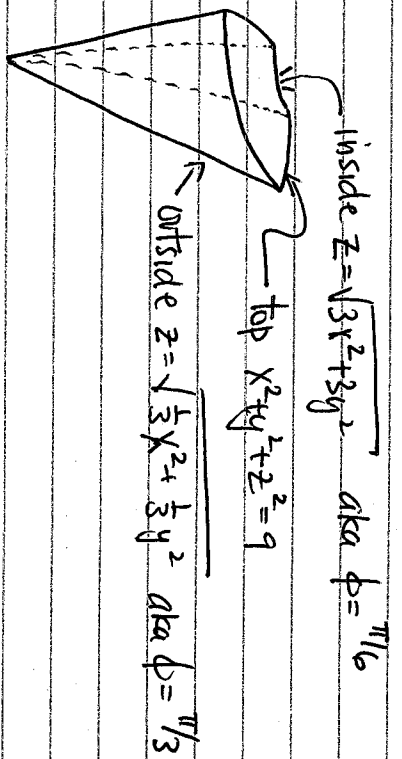 inside z = √(3x²+3y²) aka ϕ = π/6
top x²+y²+z² = 9
outside z = √(⅓x² + ⅓y²) aka ϕ = π/3